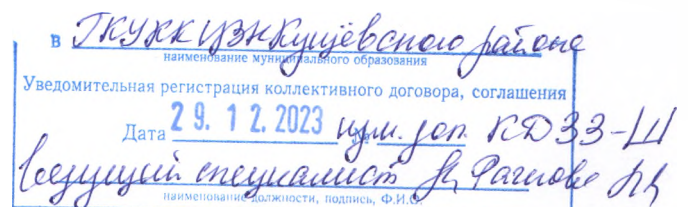 в ГКУ КК ЦЗН Кущёвского района
наименование муниципального образования
Уведомительная регистрация коллективного договора, соглашения
Дата 29.12.2023 № изм. доп. КД 33-Ш
ведущий специалист
наименование должности, подпись, Ф.И.О.